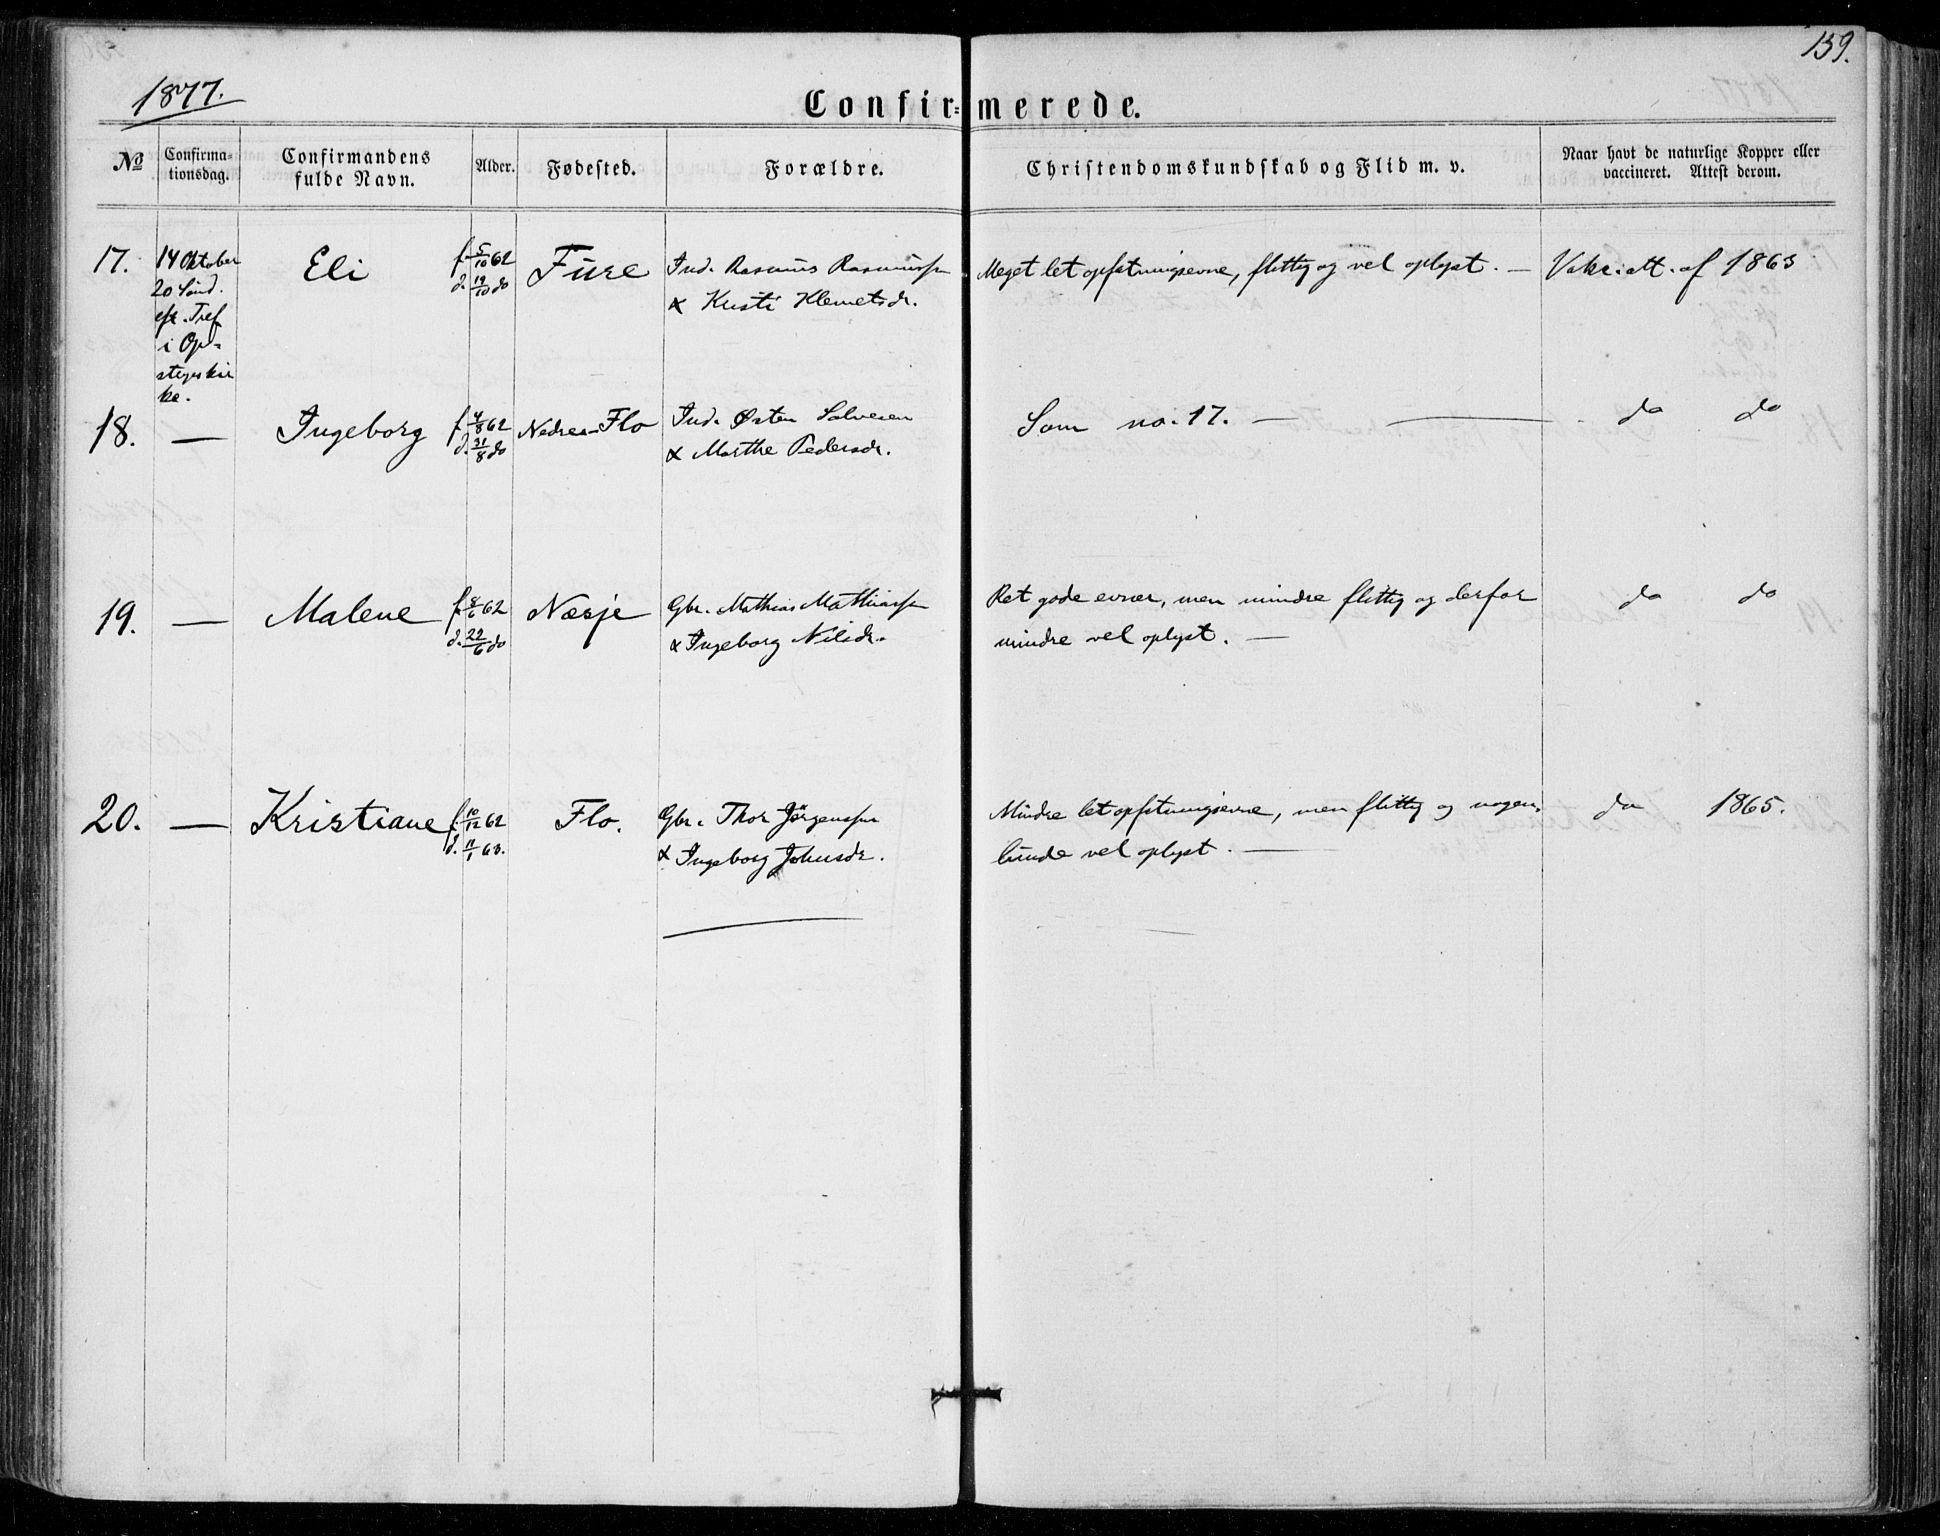 159.
1877.
Confir=merede.
No
Confirma=
tionsdag.
Confirmandens
fulde Navn.
Alder.
Fødested.
Forældre.
Christendomskundskab og Flid m. v.
Naar havt de naturlige Kopper eller
vaccineret. Attest derom.
17.
14 Oktober
20 Sønd.
eft. Tref
i Op-
stryns kir
ke.
Eli
f. 5/10 62
d. 19/10 do
Fure
Ind. Rasmus Rasmussen
& Kristi Klemetsdr.
Meget let opfatningsevne, flittig og vel oplyst. —
Vakc. att. af 1863
18.
—
Ingeborg
f. 4/8 62
d. 31/8 do
Nedre-Flo
Ind. Østen Salvesen
& Marthe Pedersdr.
Som no. 17. — —
do do
19.
—
Malene
f. 8/6 62
d. 22/6 do
Nesje
Gbr. Mathias Mathiassen
& Ingeborg Nilsdr.
Ret gode evner, men mindre flittig og derfor
mindre vel oplyst. —
do do
20.
—
Kristiane
f. 10/12 62
d. 11/1 63.
Flo.
Gbr. Thor Jørgenssen
& Ingeborg Johnsdr.
Mindre let opfatningsevne, men flittig og nogen-
lunde vel oplyst. —
do 1865.